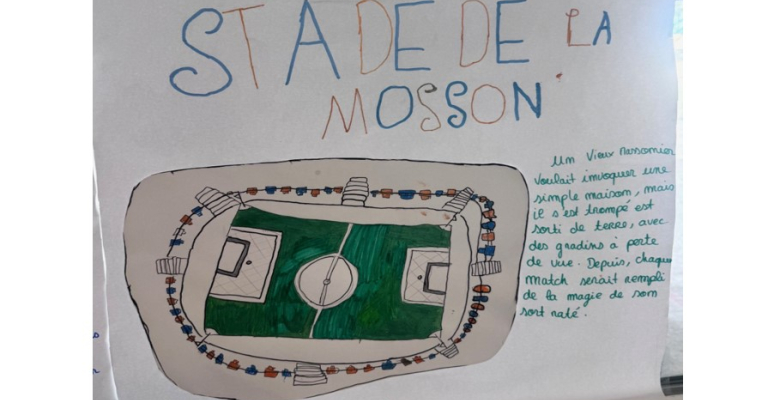 STADE DE LA
MOSSON
Un vieux massonier
voulait invoquer une
simple maison, mais
il s'est trompé est
sorti de terre, avec
des gradins à perte
de vue. Depuis, chaque
match serait rempli
de la magie de son
sort raté.